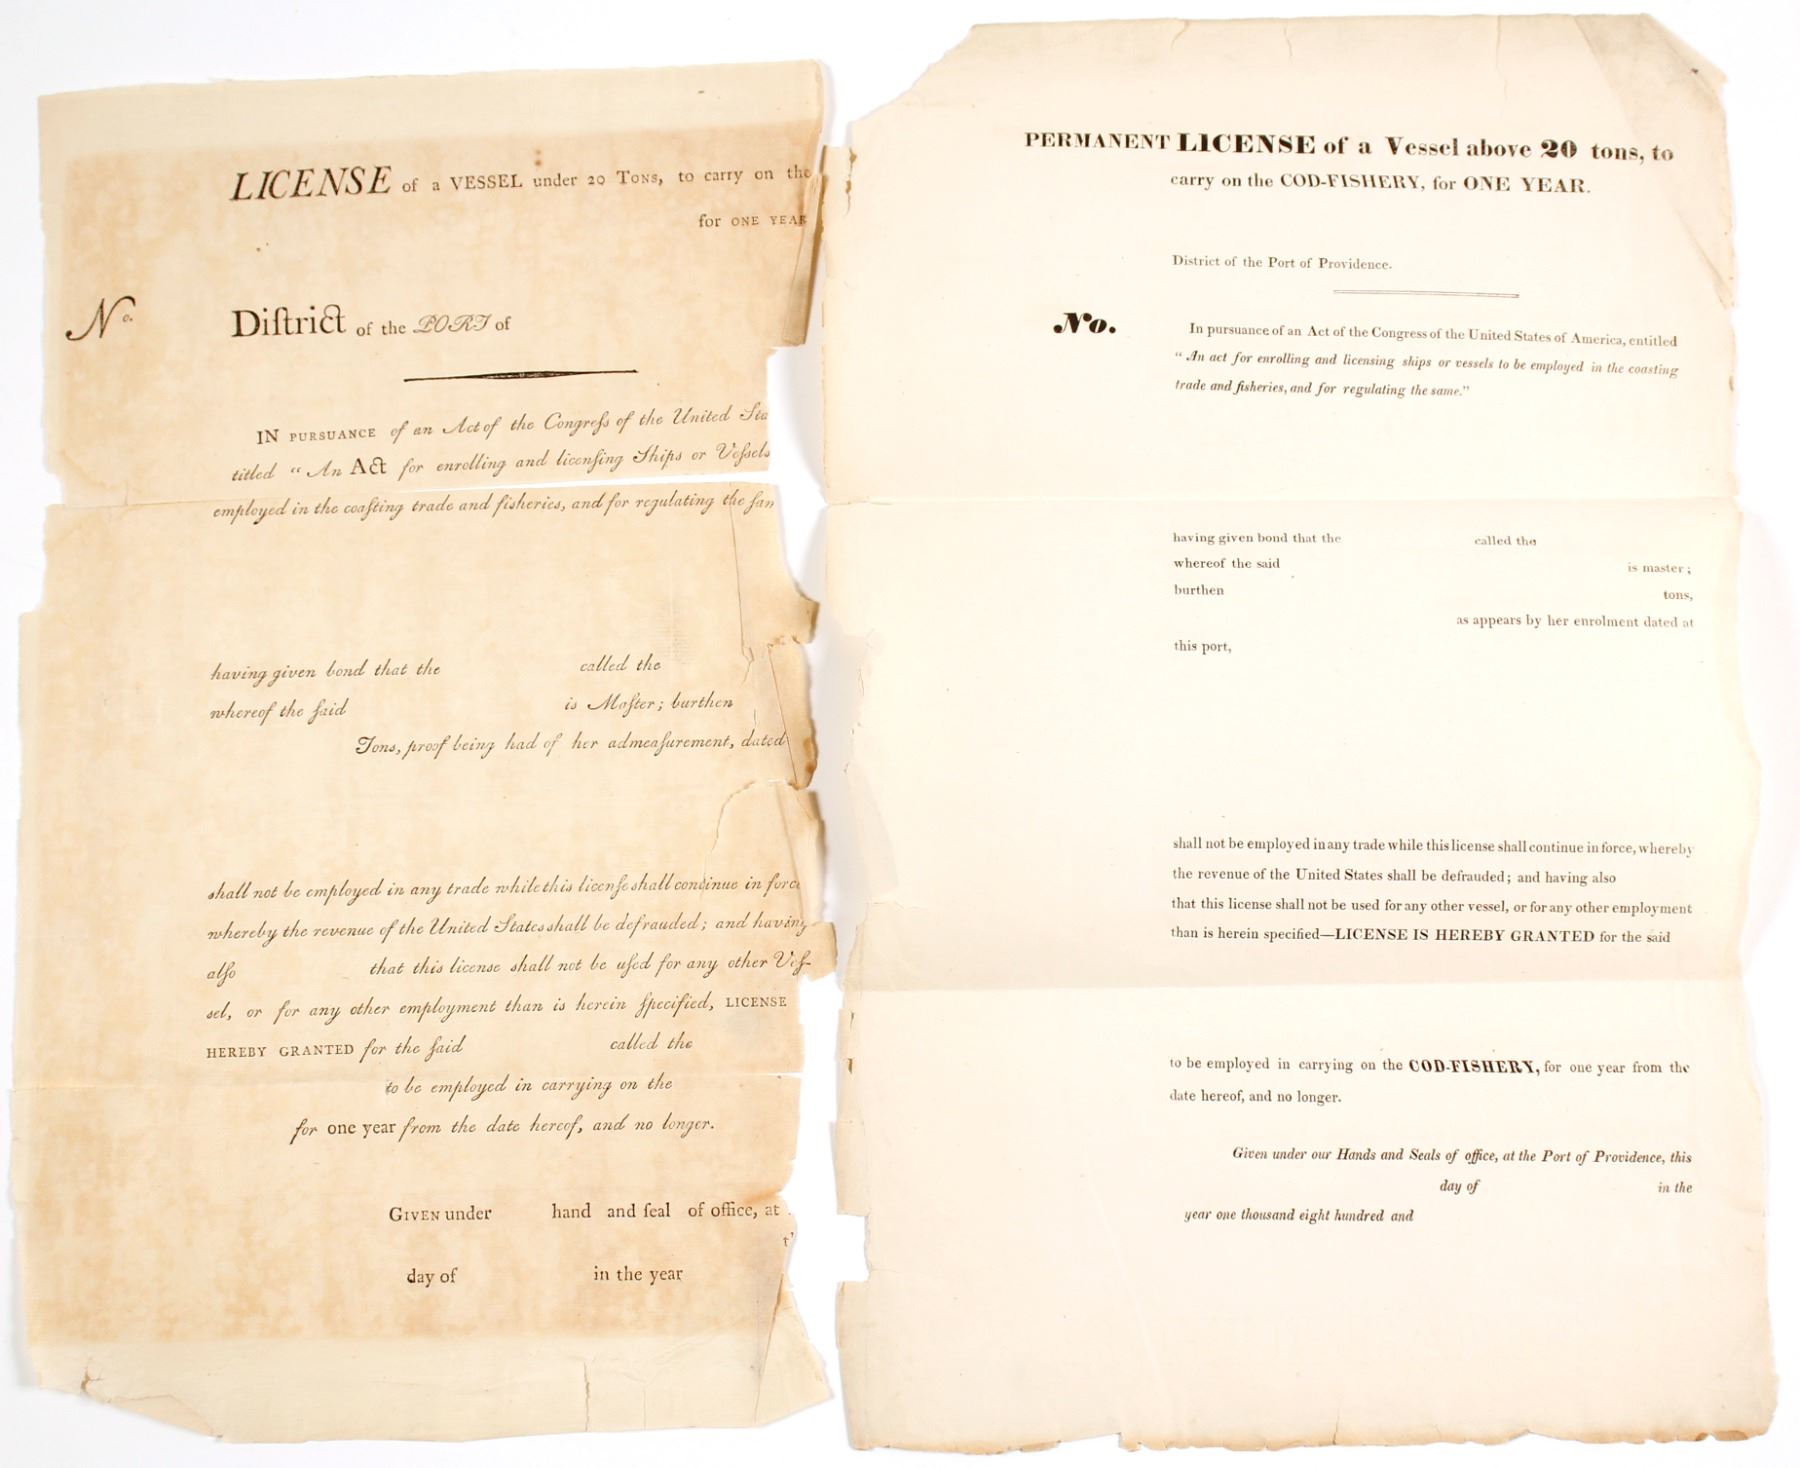 LICENSE of a VESSEL under 20 Tons, to carry on the
for ONE YEAR
No.
Diſtrict of the PORT of
IN PURSUANCE of an Act of the Congreſs of the United Sta
titled "An Act for enrolling and licenſing Ships or Veſsels
employed in the coaſting trade and fiſheries, and for regulating the ſam
having given bond that the called the
whereof the ſaid is Maſter; burthen
Tons, proof being had of her admeaſurement, dated
shall not be employed in any trade while this licenſe shall continue in force
whereby the revenue of the United States shall be defrauded; and having
alſo that this license shall not be uſed for any other Veſ-
sel, or for any other employment than is herein ſpecified, LICENSE
HEREBY GRANTED for the ſaid called the
to be employed in carrying on the
for one year from the date hereof, and no longer.
GIVEN under hand and ſeal of office, at
day of in the year
PERMANENT LICENSE of a Vessel above 20 tons, to
carry on the COD-FISHERY, for ONE YEAR.
District of the Port of Providence.
No.
In pursuance of an Act of the Congress of the United States of America, entitled
"An act for enrolling and licensing ships or vessels to be employed in the coasting
trade and fisheries, and for regulating the same."
having given bond that the called the
whereof the said is master;
burthen tons,
as appears by her enrolment dated at
this port,
shall not be employed in any trade while this license shall continue in force, whereby
the revenue of the United States shall be defrauded; and having also
that this license shall not be used for any other vessel, or for any other employment
than is herein specified—LICENSE IS HEREBY GRANTED for the said
to be employed in carrying on the COD-FISHERY, for one year from the
date hereof, and no longer.
Given under our Hands and Seals of office, at the Port of Providence, this
day of in the
year one thousand eight hundred and